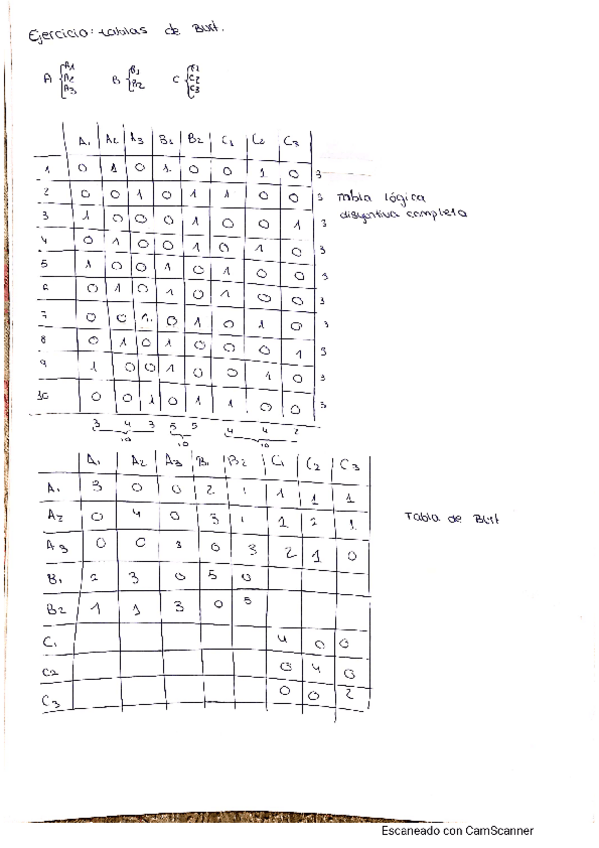 Ejercicio: tablas de Burt.
A { A1 A2 A3 B { B1 B2 C { C1 C2 C3
A1 A2 A3 B1 B2 C1 C2 C3
1 0 1 0 1 0 0 1 0 3
2 0 0 1 0 1 1 0 0 3 Tabla lógica
3 1 0 0 0 1 0 0 1 3 disyuntiva completa
4 0 1 0 0 1 0 1 0 3
5 1 0 0 1 0 1 0 0 3
6 0 1 0 1 0 1 0 0 3
7 0 0 1 0 1 0 1 0 3
8 0 1 0 1 0 0 0 1 3
9 1 0 0 1 0 0 1 0 3
10 0 0 1 0 1 1 0 0 3
3 4 3 5 5 4 4 2
10 10 10
A1 A2 A3 B1 B2 C1 C2 C3
A1 3 0 0 2 1 1 1 1
A2 0 4 0 3 1 1 2 1 Tabla de Burt
A3 0 0 3 0 3 2 1 0
B1 2 3 0 5 0
B2 1 1 3 0 5
C1 4 0 0
C2 0 4 0
C3 0 0 2
Escaneado con CamScanner